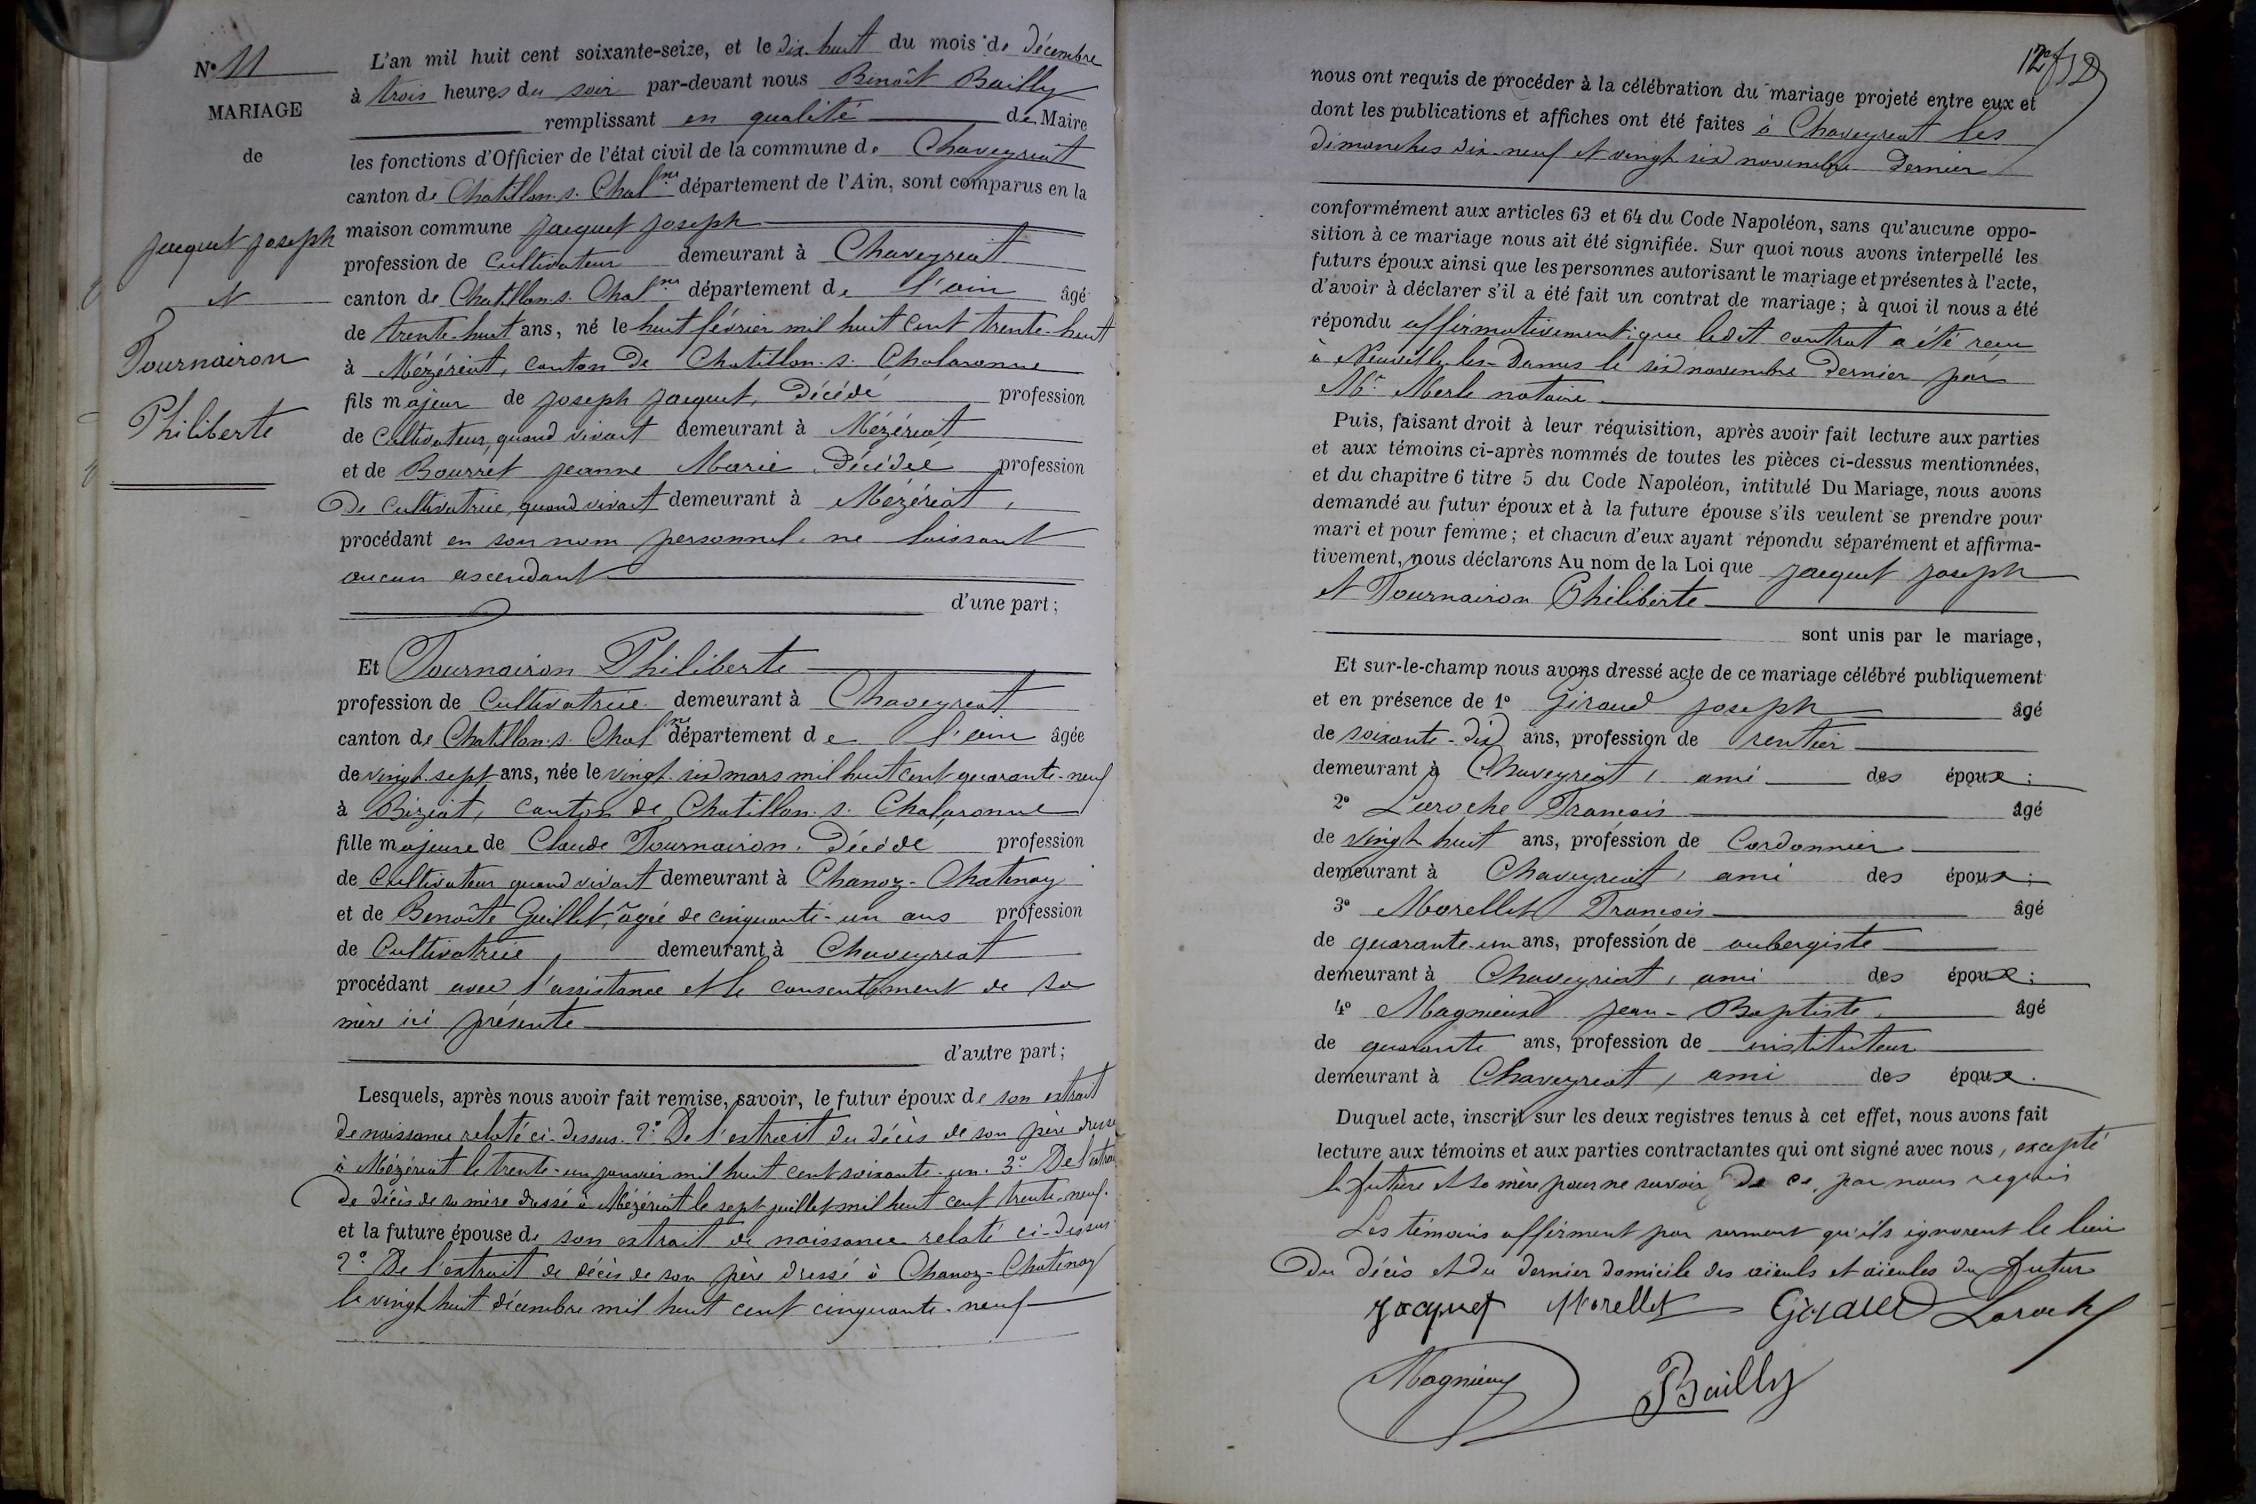 N° 11
MARIAGE
de
Jacquet Joseph
et
Tournairon
Philiberte
L'an mil huit cent soixante-seize, et le dix-huit du mois de décembre
à trois heures du soir par-devant nous Benoît Bailly
remplissant en qualité de Maire
les fonctions d'Officier de l'état civil de la commune de Chaveyriat
canton de Chatillon-s-Chal.ne département de l'Ain, sont comparus en la
maison commune Jacquet Joseph
profession de Cultivateur demeurant à Chaveyriat
canton de Chatillon-s-Chal.ne département de l'ain âgé
de trente-huit ans, né le huit février mil huit cent trente-huit
à Mézériat, canton de Chatillon-s-Chalaronne
fils majeur de Joseph Jacquet, Décédé profession
de Cultivateur, quand vivait demeurant à Mézériat
et de Bourret Jeanne Marie Décédée profession
De Cultivatrice, quand vivait demeurant à Mézériat,
procédant en son nom personnel, ne laissant
aucun ascendant
d'une part;
Et Tournairon Philiberte
profession de Cultivatrice demeurant à Chaveyriat
canton de Chatillon-s-Chal.ne département de l'ain âgée
de vingt-sept ans, née le vingt-six mars mil huit cent quarante-neuf
à Biziat, canton de Chatillon-s-Chalaronne
fille majeure de Claude Tournairon, Décédé profession
de Cultivateur quand vivait demeurant à Chanoz-Chatenay
et de Benoîte Guillet, âgée de cinquante-un ans profession
de Cultivatrice, demeurant à Chaveyriat
procédant avec l'assistance et le consentement de sa
mère ici présente
d'autre part;
Lesquels, après nous avoir fait remise, savoir, le futur époux de son extrait
de naissance relaté ci-dessus. 2° De l'extrait du décès de son père dressé
à Mézériat le trente-un janvier mil huit cent soixante-un. 3° De l'extrait
De décès de sa mère dressé à Mézériat le sept juillet mil huit cent trente-neuf.
et la future épouse de son extrait de naissance relaté ci-dessus
2° De l'extrait de décès de son père dressé à Chanoz-Chatenay
le vingt huit décembre mil huit cent cinquante-neuf
nous ont requis de procéder à la célébration du mariage projeté entre eux et
dont les publications et affiches ont été faites à Chaveyriat les
dimanches dix-neuf et vingt six novembre Dernier
conformément aux articles 63 et 64 du Code Napoléon, sans qu'aucune oppo-
sition à ce mariage nous ait été signifiée. Sur quoi nous avons interpellé les
futurs époux ainsi que les personnes autorisant le mariage et présentes à l'acte,
d'avoir à déclarer s'il a été fait un contrat de mariage; à quoi il nous a été
répondu affirmativement; que ledit contrat a été reçu
à Neuville-les-Dames le six novembre Dernier par
Me Merle notaire.
Puis, faisant droit à leur réquisition, après avoir fait lecture aux parties
et aux témoins ci-après nommés de toutes les pièces ci-dessus mentionnées,
et du chapitre 6 titre 5 du Code Napoléon, intitulé Du Mariage, nous avons
demandé au futur époux et à la future épouse s'ils veulent se prendre pour
mari et pour femme; et chacun d'eux ayant répondu séparément et affirma-
tivement, nous déclarons Au nom de la Loi que Jacquet Joseph
et Tournairon Philiberte
sont unis par le mariage,
Et sur-le-champ nous avons dressé acte de ce mariage célébré publiquement
et en présence de 1° Giraud Joseph âgé
de soixante-dix ans, profession de rentier
demeurant à Chaveyriat, ami des époux;
2° Laroche François âgé
de vingt huit ans, profession de Cordonnier
demeurant à Chaveyriat, ami des époux;
3° Morellet François âgé
de quarante-un ans, profession de aubergiste
demeurant à Chaveyriat, ami des époux;
4° Magnieux Jean-Baptiste âgé
de quarante ans, profession de instituteur
demeurant à Chaveyriat, ami des époux.
Duquel acte, inscrit sur les deux registres tenus à cet effet, nous avons fait
lecture aux témoins et aux parties contractantes qui ont signé avec nous, excepté
la future et sa mère pour ne savoir De ce, par nous requis
Les témoins affirment par serment qu'ils ignorent le lieu
Du décès et du dernier domicile des aïeuls et aïeules du futur
Jacquet Morellet Giraud Laroche
Magnieux Bailly